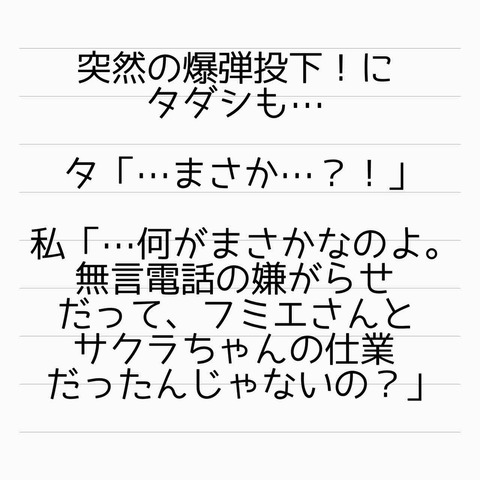 突然の爆弾投下！に
タダシも…
タ「…まさか…？！」
私「…何がまさかなのよ。
無言電話の嫌がらせ
だって、フミエさんと
サクラちゃんの仕業
だったんじゃないの？」